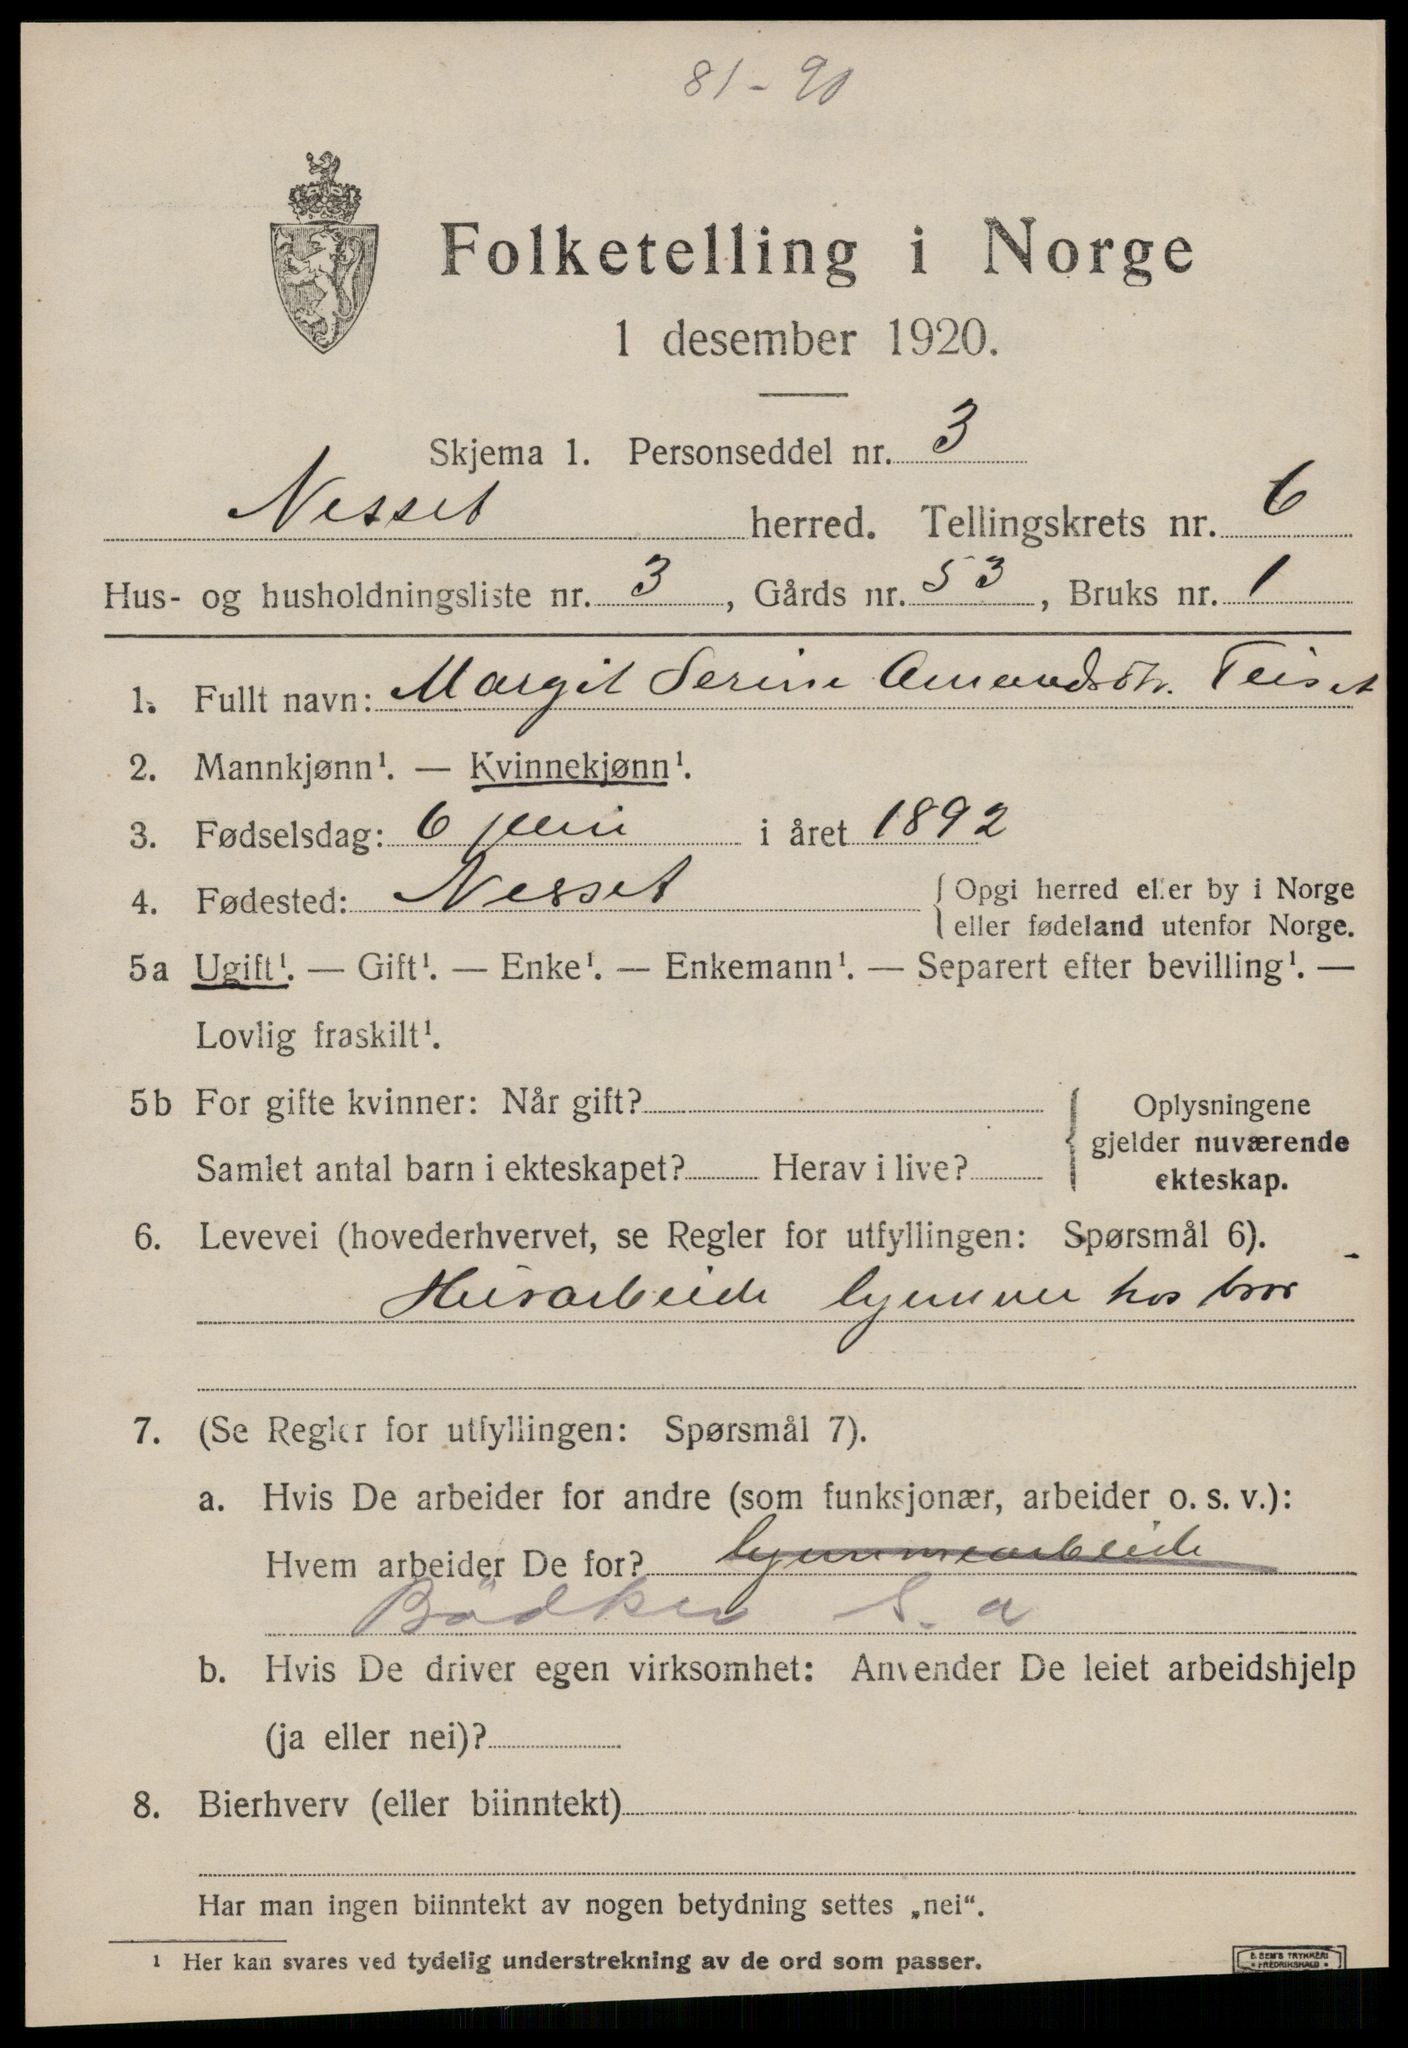 81-90
Folketelling i Norge
1 desember 1920.
Skjema 1. Personseddel nr. 3
Nesset herred. Tellingskrets nr. 6
Hus- og husholdningsliste nr. 3, Gårds nr. 53, Bruks nr. 1
1. Fullt navn: Margit Serine Amandsdtr. Teiset
2. Mannkjønn¹. — Kvinnekjønn¹.
3. Fødselsdag: 6 juni i året 1892
4. Fødested: Nesset { Opgi herred eller by i Norge
eller fødeland utenfor Norge.
5a Ugift¹. — Gift¹. — Enke¹. — Enkemann¹. — Separert efter bevilling¹. —
Lovlig fraskilt¹.
5b For gifte kvinner: Når gift?
Samlet antal barn i ekteskapet? Herav i live?
{ Oplysningene
gjelder nuværende
ekteskap.
6. Levevei (hovederhvervet, se Regler for utfyllingen: Spørsmål 6).
Husarbeide hjemme hos bror
7. (Se Regler for utfyllingen: Spørsmål 7).
a. Hvis De arbeider for andre (som funksjonær, arbeider o. s. v.):
Hvem arbeider De for? hjemmearbeide
Bödker S. a
b. Hvis De driver egen virksomhet: Anvender De leiet arbeidshjelp
(ja eller nei)?
8. Bierhverv (eller biinntekt)
Har man ingen biinntekt av nogen betydning settes „nei“.
¹ Her kan svares ved tydelig understrekning av de ord som passer.
E. SEM'S TRYKKERI
• FREDRIKSHALD •